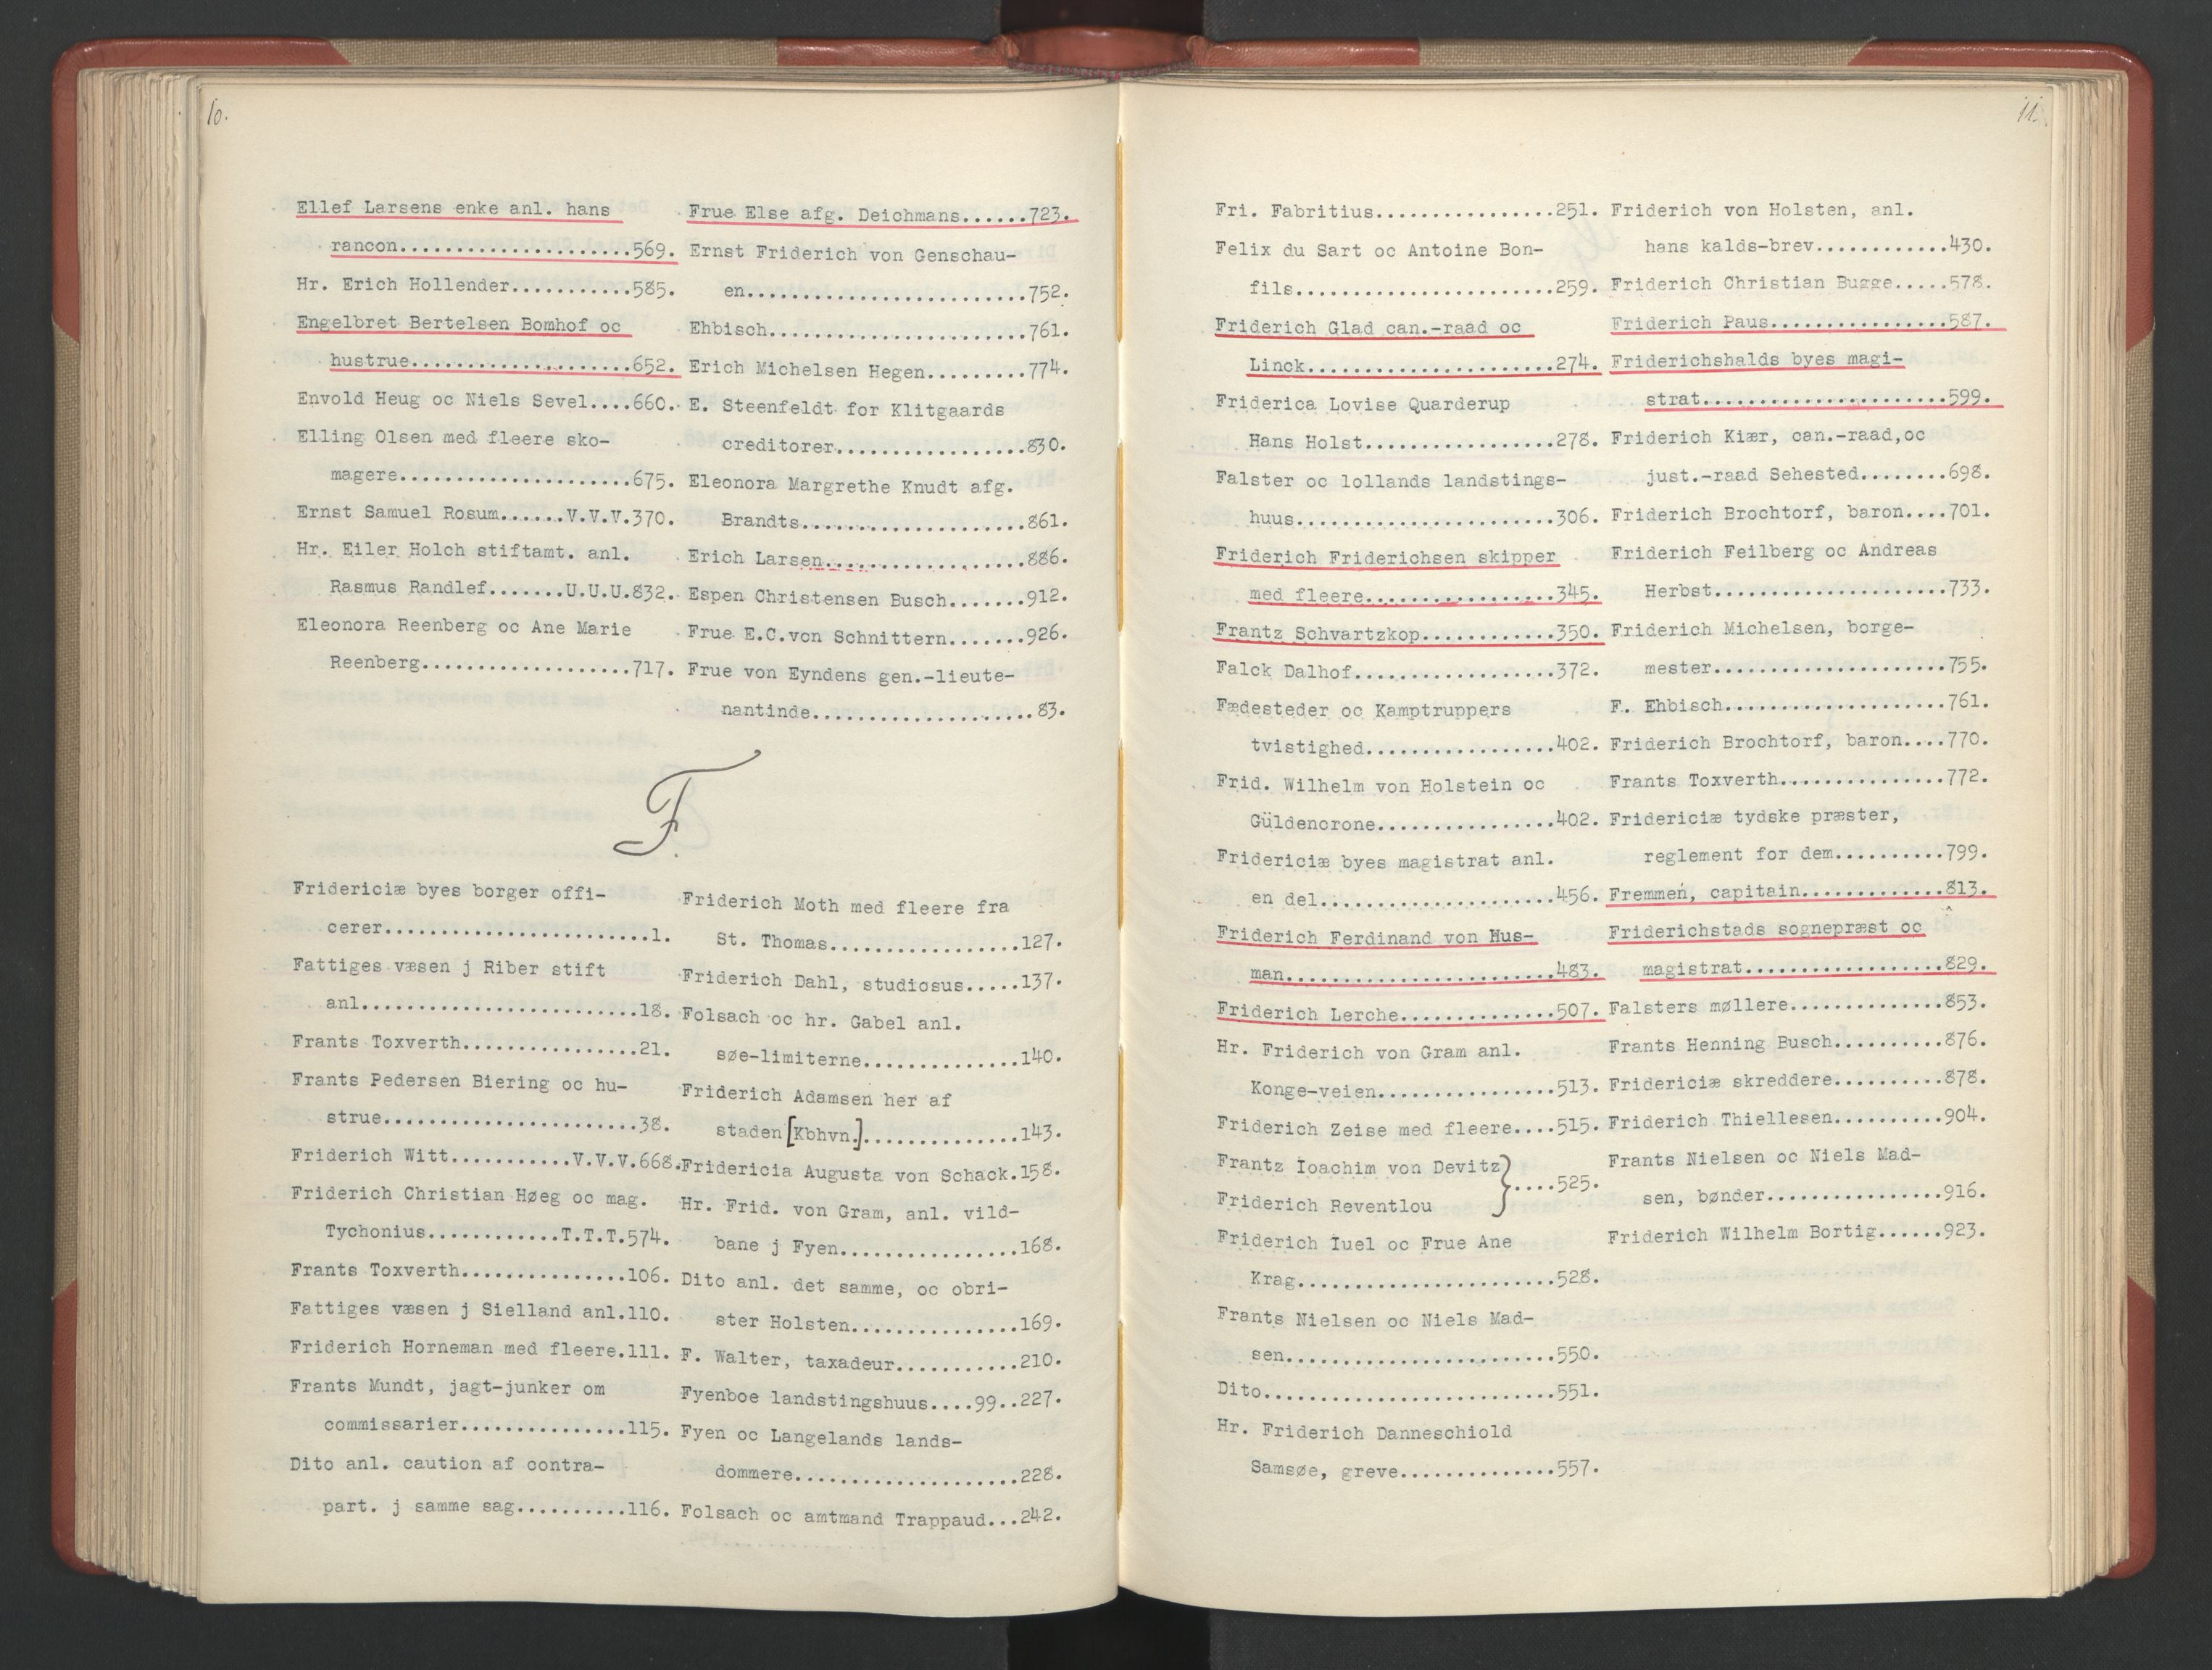 10.
Ellef Larsens enke anl. hans
rancon.....................569.
Hr. Erich Hollender...........585.
Engelbret Bertelsen Bomhof oc
hustrue....................652.
Envold Heug oc Niels Sevel....660.
Elling Olsen med fleere sko-
magere.....................675.
Ernst Samuel Rosum......V.V.V.370.
Hr. Eiler Holch stiftamt. anl.
Rasmus Randlef.......U.U.U.832.
Eleonora Reenberg oc Ane Marie
Reenberg...................717.
Frue Else afg. Deichmans......723.
Ernst Friderich von Genschau-
en.........................752.
Ehbisch.......................761.
Erich Michelsen Hegen.........774.
E. Steenfeldt for Klitgaards
creditorer.................830.
Eleonora Margrethe Knudt afg.
Brandts....................861.
Erich Larsen..................886.
Espen Christensen Busch.......912.
Frue E.C.von Schnittern.......926.
Frue von Eyndens gen.-lieute-
nantinde....................83.
F.
Fridericiæ byes borger offi-
cerer........................1.
Fattiges væsen j Riber stift
anl.........................18.
Frants Toxverth................21.
Frants Pedersen Biering oc hu-
strue.......................38.
Friderich Witt...........V.V.V.668.
Friderich Christian Høeg oc mag.
Tychonius............T.T.T.574.
Frants Toxverth...............106.
Fattiges væsen j Sielland anl.110.
Friderich Horneman med fleere.111.
Frants Mundt, jagt-junker om
commissarier...............115.
Dito anl. caution af contra-
part. j samme sag..........116.
Friderich Moth med fleere fra
St. Thomas.................127.
Friderich Dahl, studiosus.....137.
Folsach oc hr. Gabel anl.
søe-limiterne..............140.
Friderich Adamsen her af
staden [Kbhvn.]..............143.
Fridericia Augusta von Schack.158.
Hr. Frid. von Gram, anl. vild-
bane j Fyen................168.
Dito anl. det samme, oc obri-
ster Holsten...............169.
F. Walter, taxadeur...........210.
Fyenboe landstingshuus....99..227.
Fyen oc Langelands lands-
dommere....................228.
Folsach oc amtmand Trappaud...242.
11.
Fri. Fabritius................251.
Felix du Sart oc Antoine Bon-
fils.......................259.
Friderich Glad can.-raad oc
Linck......................274.
Friderica Lovise Quarderup
Hans Holst.................278.
Falster oc lollands landstings-
huus.......................306.
Friderich Friderichsen skipper
med fleere.................345.
Frantz Schvartzkop............350.
Falck Dalhof..................372.
Fædesteder oc Kamptruppers
tvistighed.................402.
Frid. Wilhelm von Holstein oc
Güldencrone................402.
Fridericiæ byes magistrat anl.
en del.....................456.
Friderich Ferdinand von Hus-
man........................483.
Friderich Lerche..............507.
Hr. Friderich von Gram anl.
Konge-veien................513.
Friderich Zeise med fleere....515.
Frantz Ioachim von Devitz
}....525.
Friderich Reventlou
Friderich Iuel oc Frue Ane
Krag.......................528.
Frants Nielsen oc Niels Mad-
sen........................550.
Dito..........................551.
Hr. Friderich Danneschiold
Samsøe, greve..............557.
Friderich von Holsten, anl.
hans kalds-brev............430.
Friderich Christian Bugge.....578.
Friderich Paus................587.
Friderichshalds byes magi-
strat......................599.
Friderich Kiær, can.-raad,oc
just.-raad Sehested........698.
Friderich Brochtorf, baron....701.
Friderich Feilberg oc Andreas
Herbst.....................733.
Friderich Michelsen, borge-
mester.....................755.
F. Ehbisch....................761.
Friderich Brochtorf, baron....770.
Frants Toxverth...............772.
Fridericiæ tydske præster,
reglement for dem..........799.
Fremmen, capitain.............813.
Friderichstads sognepræst oc
magistrat..................829.
Falsters møllere..............853.
Frants Henning Busch..........876.
Fridericiæ skreddere..........878.
Friderich Thiellesen..........904.
Frants Nielsen oc Niels Mad-
sen, bønder................916.
Friderich Wilhelm Bortig......923.